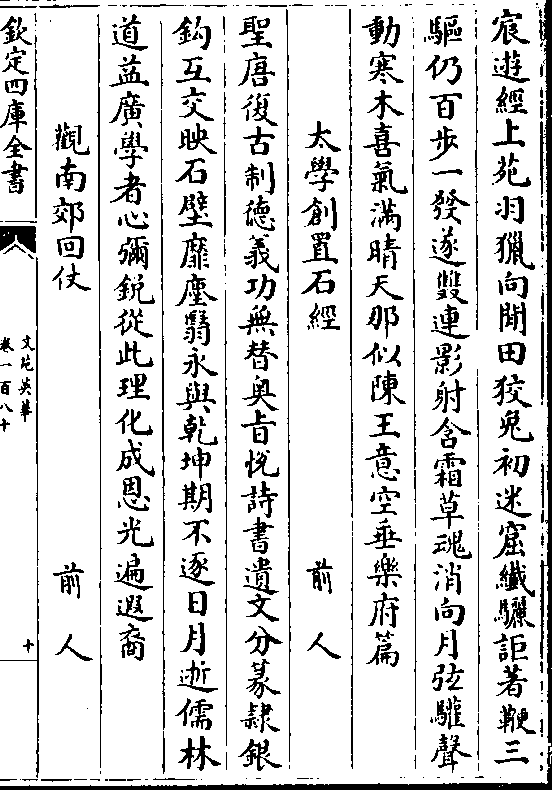 宸遊經上苑羽獵向閒田狡兔初迷窟纎驪詎著鞭三
驅仍百歩一發遂雙連影射含霜草魂消向月弦驩聲
動寒木喜氣滿晴天那似陳王意空垂樂府篇
太學創置石經 前人
聖唐復古制德義功無替奥旨恱詩書遺文分篆隷銀
鈎互交映石壁靡塵翳永與乾坤期不逐日月逝儒林
道益廣學者心彌銳從此理化成恩光遍遐裔
觀南郊回仗 前人
欽定四庫全書
文苑英華
卷一百八十
十